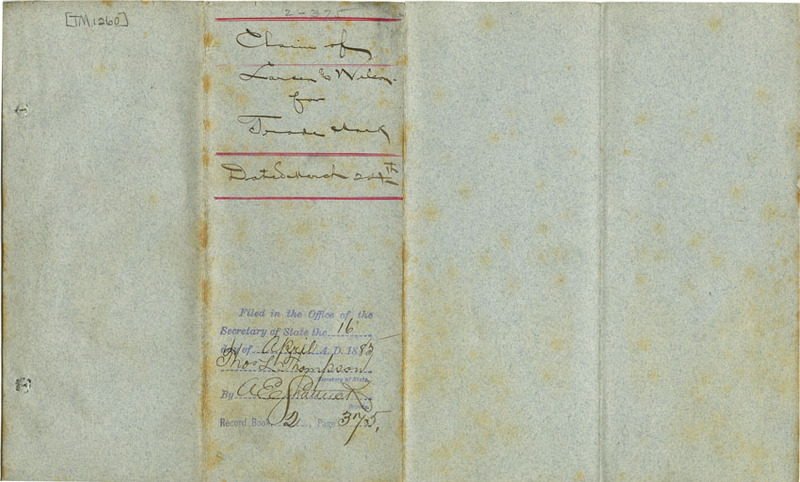 [TM 1260]
2-375
Claim of
Larsen & Wilson.
for
Trade Mark
Dated March 24th
Filed in the Office of the
Secretary of State the 16
day of April A. D. 1883
Thos L Thompson
Secretary of State.
By A E Shattuck
Deputy
Record Book, 2, Page 375.